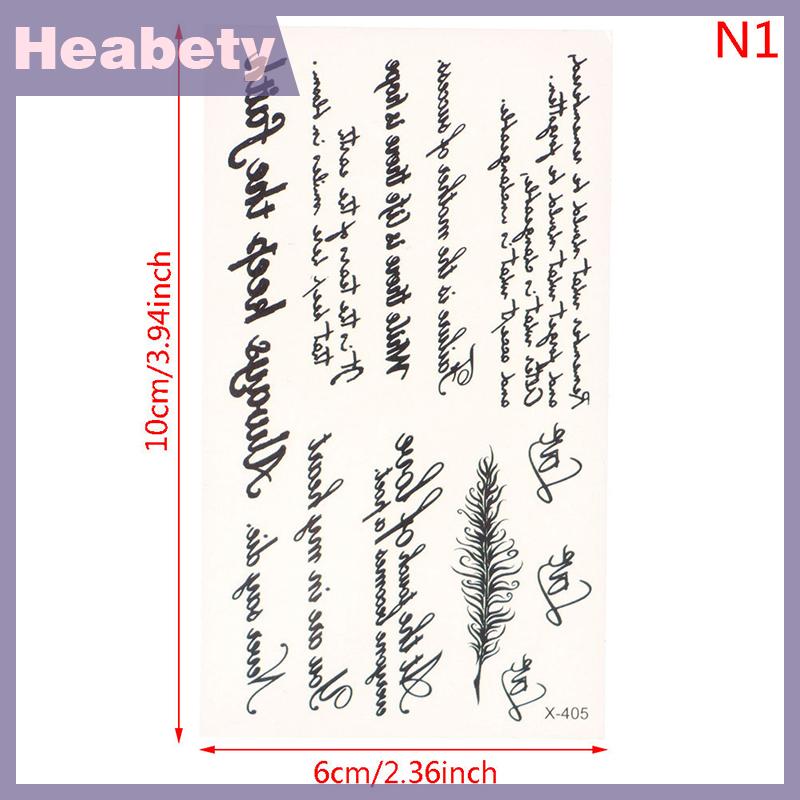 Heabety
N1
10cm/3.94inch
Always keep the Faith
It is the tears of the earth
that keep her smiles in bloom.
While there is life there is hope
Failure is the mother of success
Remember what should be remembered,
and forget what should be forgotten.
Alter what is changeable,
and accept what is
Never say die.
You are in my heart
At the touch of love
everyone becomes a poet.
Love
Love
Love
X-405
6cm/2.36inch